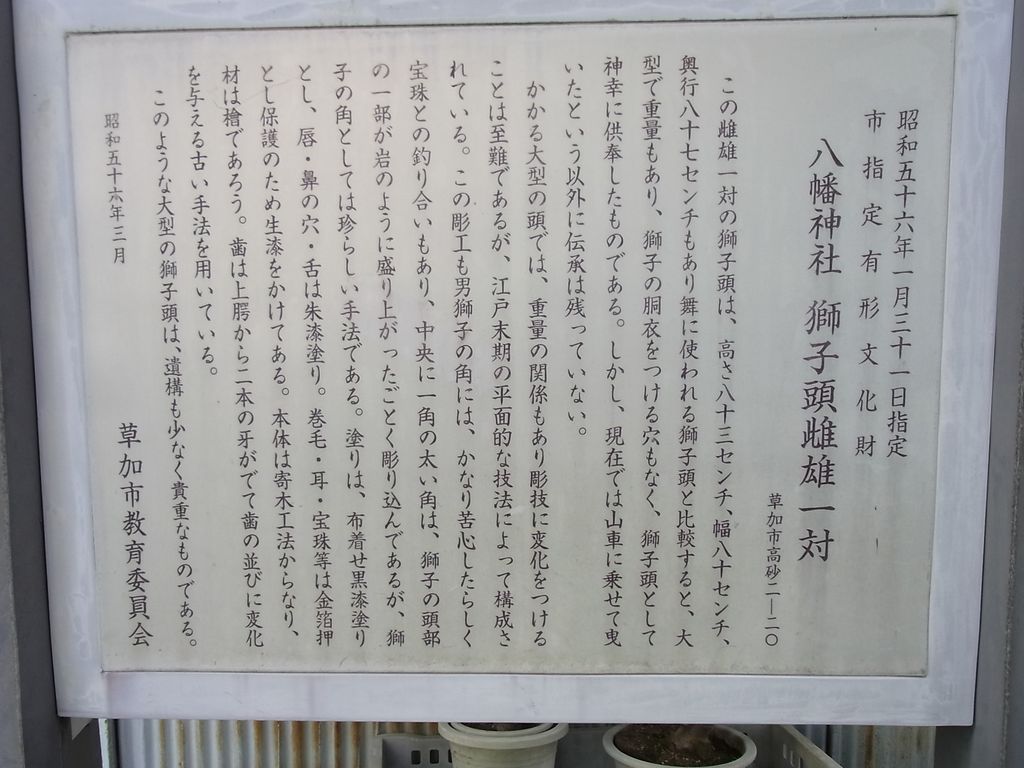 昭和五十六年一月三十一日指定
市指定有形文化財
八幡神社 獅子頭雌雄一対
草加市高砂二―二〇
この雌雄一対の獅子頭は、高さ八十三センチ、幅八十センチ、
奥行八十七センチもあり舞に使われる獅子頭と比較すると、大
型で重量もあり、獅子の胴衣をつける穴もなく、獅子頭として
神幸に供奉したものである。しかし、現在では山車に乗せて曳
いたという以外に伝承は残っていない。
かかる大型の頭では、重量の関係もあり彫技に変化をつける
ことは至難であるが、江戸末期の平面的な技法によって構成さ
れている。この彫工も男獅子の角には、かなり苦心したらしく
宝珠との釣り合いもあり、中央に一角の太い角は、獅子の頭部
の一部が岩のように盛り上がったごとく彫り込んであるが、獅
子の角としては珍らしい手法である。塗りは、布着せ黒漆塗り
とし、唇・鼻の穴・舌は朱漆塗り。巻毛・耳・宝珠等は金箔押
とし保護のため生漆をかけてある。本体は寄木工法からなり、
材は檜であろう。歯は上腭から二本の牙がでて歯の並びに変化
を与える古い手法を用いている。
このような大型の獅子頭は、遺構も少なく貴重なものである。
昭和五十六年三月
草加市教育委員会